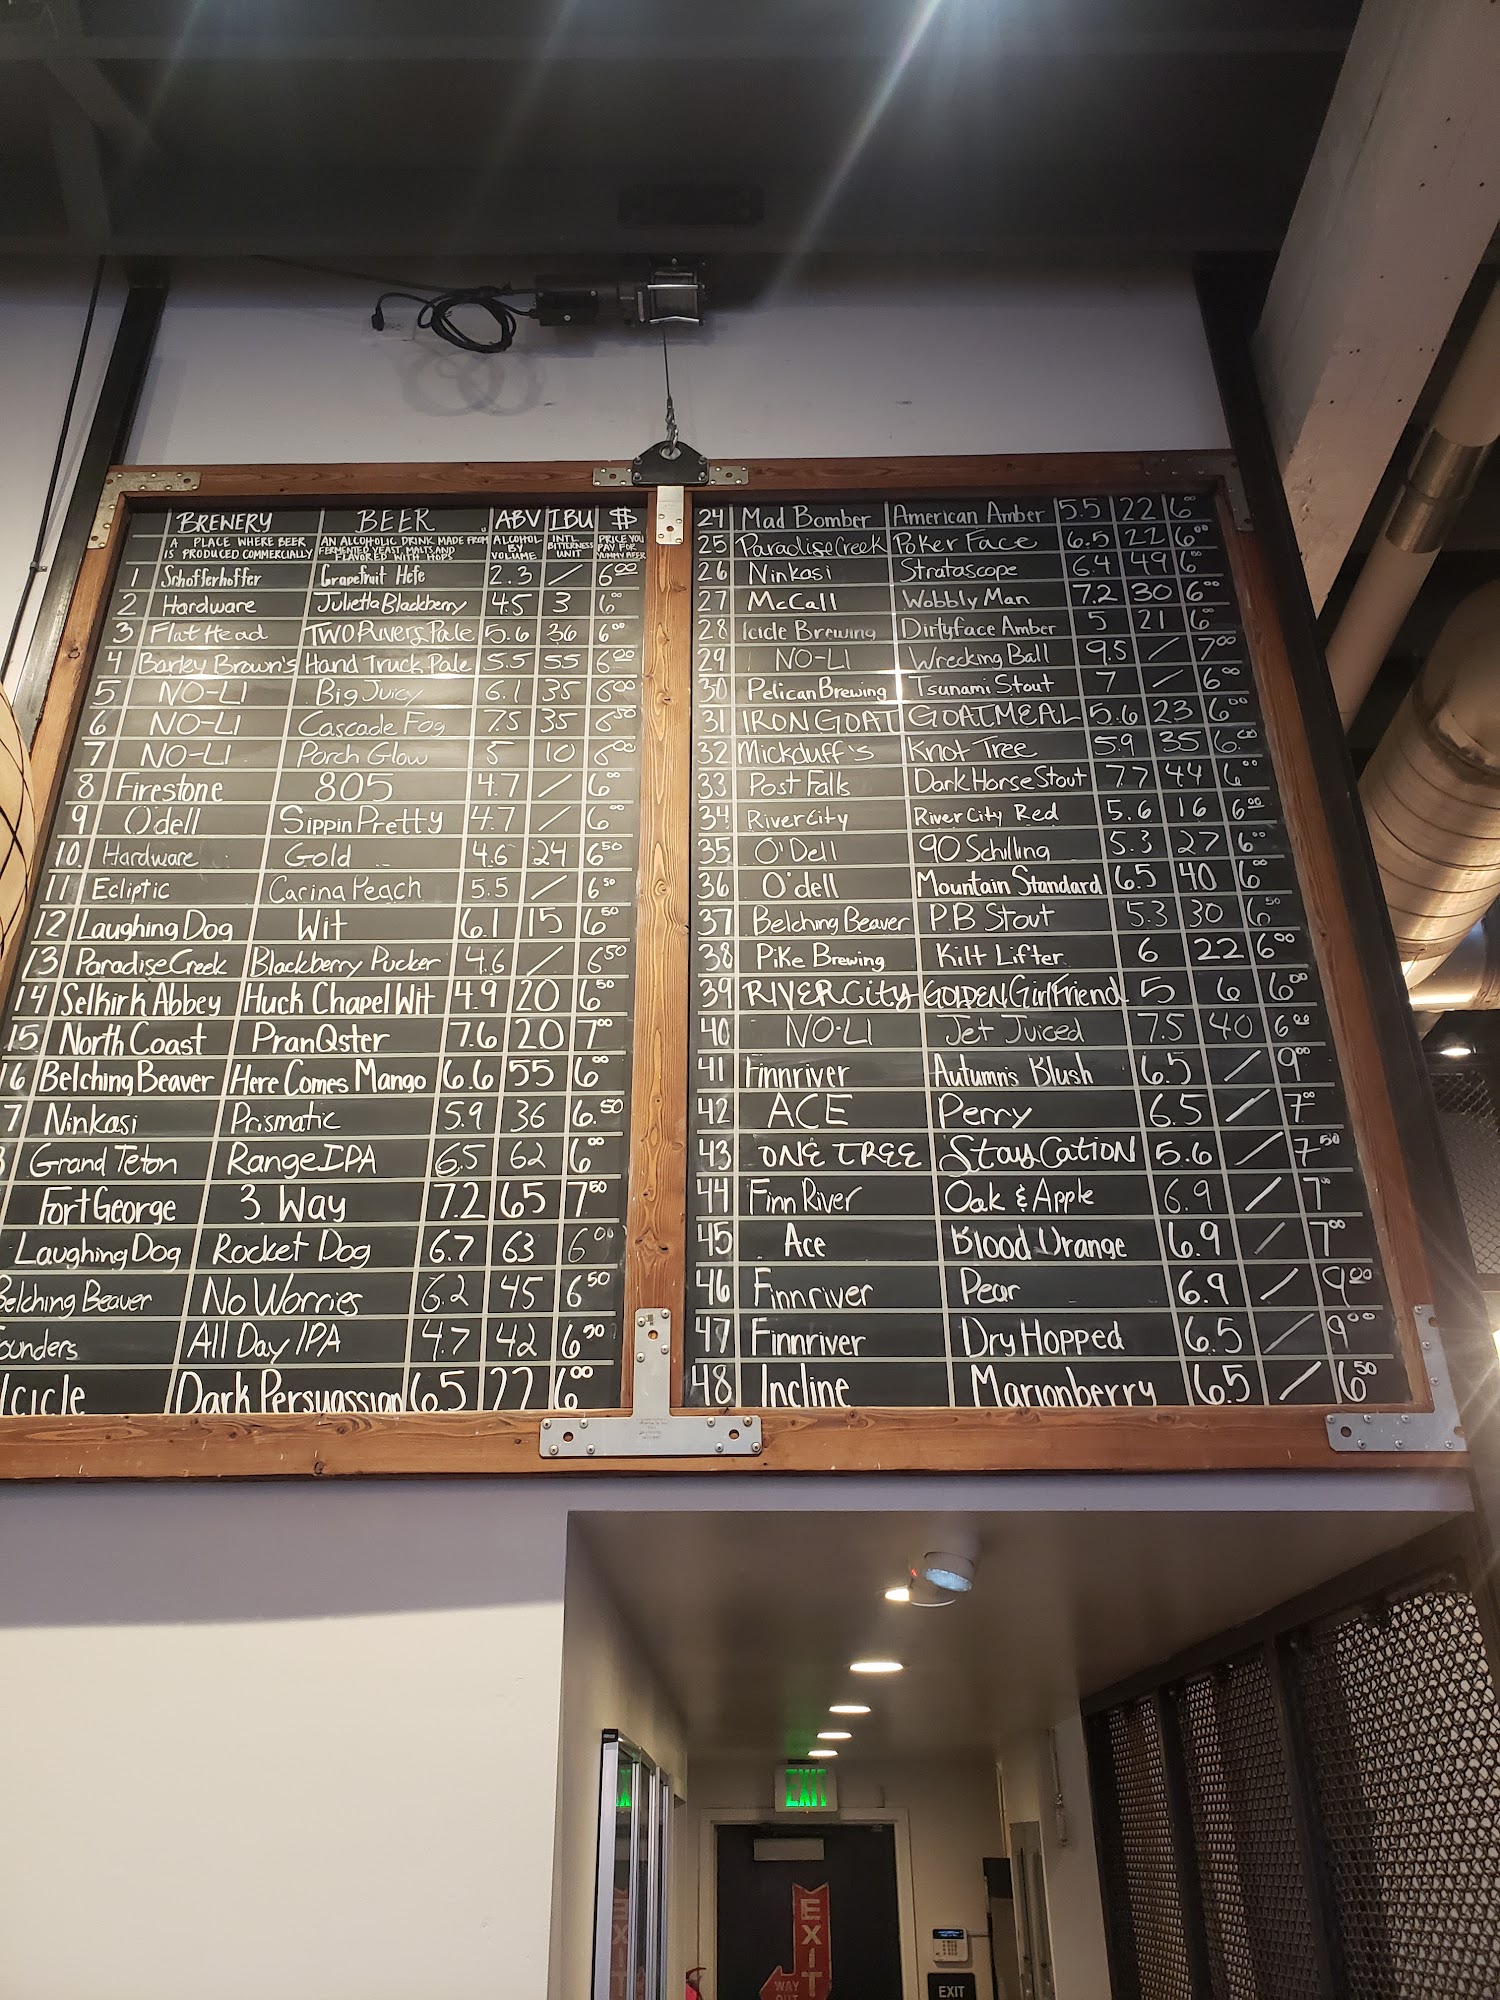 BREWERY BEER ABV IBU $
A PLACE WHERE BEER IS PRODUCED COMMERCIALLY AN ALCOHOLIC DRINK MADE FROM FERMENTED YEAST, MALTS AND FLAVORED WITH HOPS ALCOHOL BY VOLUME INTL BITTERNESS UNIT PRICE YOU PAY FOR YUMMY BEER
1 Schofferhoffer Grapefruit Hefe 2.3 / 6.00
2 Hardware Julietta Blackberry 4.5 3 6.00
3 Flat Head TWO Rivers Pale 5.6 36 6.00
4 Barley Brown's Hand Truck Pale 5.5 55 6.00
5 NO-LI Big Juicy 6.1 35 6.00
6 NO-LI Cascade Fog 7.5 35 6.50
7 NO-LI Porch Glow 5 10 6.00
8 Firestone 805 4.7 / 6.00
9 O'dell Sippin Pretty 4.7 / 6.00
10. Hardware Gold 4.6 24 6.50
11 Ecliptic Carina Peach 5.5 / 6.50
12 Laughing Dog Wit 6.1 15 6.50
13 Paradise Creek Blackberry Pucker 4.6 / 6.50
14 Selkirk Abbey Huck Chapel Wit 4.9 20 6.50
15 North Coast PranQster 7.6 20 7.00
16 Belching Beaver Here Comes Mango 6.6 55 6.00
7 Ninkasi Prismatic 5.9 36 6.50
Grand Teton Range IPA 6.5 62 6.00
Fort George 3 Way 7.2 65 7.50
Laughing Dog Rocket Dog 6.7 63 6.00
Belching Beaver No Worries 6.2 45 6.50
ounders All Day IPA 4.7 42
Icicle Dark Persuassian 6.5 22 6.00
24 Mad Bomber American Amber 5.5 22 6.00
25 Paradise Creek Poker Face 6.5 22 6.00
26 Ninkasi Stratascope 6.4 49 6.50
27 McCall Wobbly Man 7.2 30 6.00
28 Icicle Brewing Dirtyface Amber 5 21 6.00
29 NO-LI Wrecking Ball 9.5 / 7.00
30 Pelican Brewing Tsunami Stout 7 / 6.00
31 IRON GOAT GOATMEAL 5.6 23 6.00
32 Mickduff's Knot Tree 5.9 35 6.00
33 Post Falls Dark Horse Stout 7.7 44 6.00
34 River City River City Red 5.6 16 6.00
35 O'Dell 90 Schilling 5.3 27 6.00
36 O'dell Mountain Standard 6.5 40 6.00
37 Belching Beaver P.B Stout 5.3 30 6.50
38 Pike Brewing Kilt Lifter 6 22 6.00
39 RIVER City GOLDEN Girlfriend 5 6 6.00
40 NO-LI Jet Juiced 7.5 40 6.00
41 Finnriver Autumn's Blush 6.5 / 9.00
42 ACE Perry 6.5 / 7.00
43 ONE TREE StayCation 5.6 / 7.50
44 Finn River Oak & Apple 6.9 / 7
45 Ace Blood Orange 6.9 / 7.00
46 Finnriver Pear 6.9 / 9.00
47 Finnriver Dry Hopped 6.5 / 9.00
48 Incline Marionberry 6.5 / 6.50
EXIT
EXIT
WAY OUT
EXIT